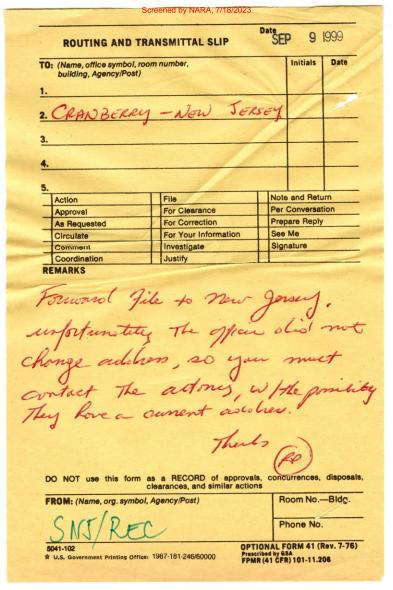 Screened by NARA, 7/18/2023
ROUTING AND TRANSMITTAL SLIP
Date
SEP 9 1999
TO: (Name, office symbol, room number, building, Agency/Post)
Initials
Date
1.
2. CRANBERRY - NEW JERSEY
3.
4.
5.
Action File Note and Return
Approval For Clearance Per Conversation
As Requested For Correction Prepare Reply
Circulate For Your Information See Me
Comment Investigate Signature
Coordination Justify
REMARKS
Forward File to New Jersey.
unfortunately the officer did not
change address, so you must
contact the , w/the possibility
They have a current address.
Thanks
RP
DO NOT use this form as a RECORD of approvals, concurrences, disposals,
clearances, and similar actions
FROM: (Name, org. symbol, Agency/Post)
Room No.—Bldg.
Phone No.
SNJ/REC
5041-102
☆ U.S. Government Printing Office: 1987-181-246/60000
OPTIONAL FORM 41 (Rev. 7-76)
Prescribed by GSA
FPMR (41 CFR) 101-11.206